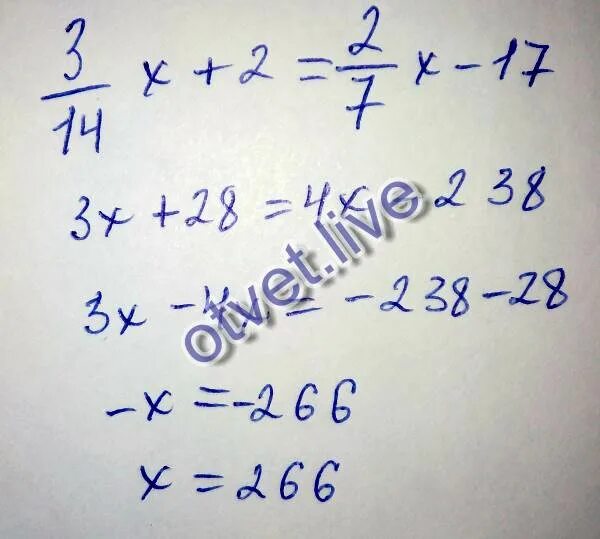 3/14 x + 2 = 2/7 x - 17
3x + 28 = 4x - 238
3x - 4x = -238 - 28
-x = -266
x = 266
otvet.live